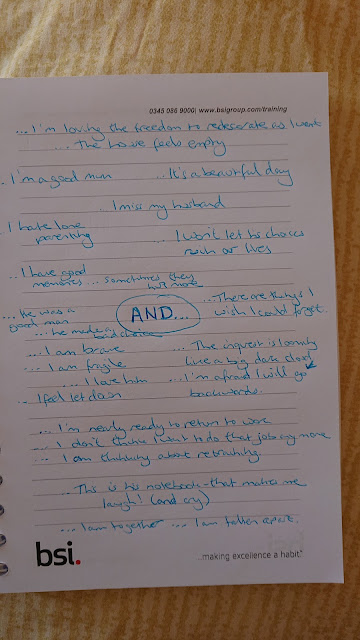 0345 086 9000 | www.bsigroup.com/training
... I'm loving the freedom to redecorate as I want
... The house feels empty
.. I'm a good mum ... It's a beautiful day
... I miss my husband
I hate lone
parenting
... I won't let his choices
ruin our lives
.. I have good
memories ... sometimes they
hurt more
... he was a
good man
... he made a
bad choice
AND...
... There are things I
wish I could forget.
... I am brave ... The inquest is looming
like a big dark cloud
... I am fragile
... I love him ... I'm afraid I will go
backwards.
... I feel let down
... I'm nearly ready to return to work
... I don't think I want to do that job any more
... I am thinking about retraining.
... This is his notebook - that makes me
laugh! (and cry)
... I am together ... I am fallen apart.
bsi.
...making excellence a habit.™